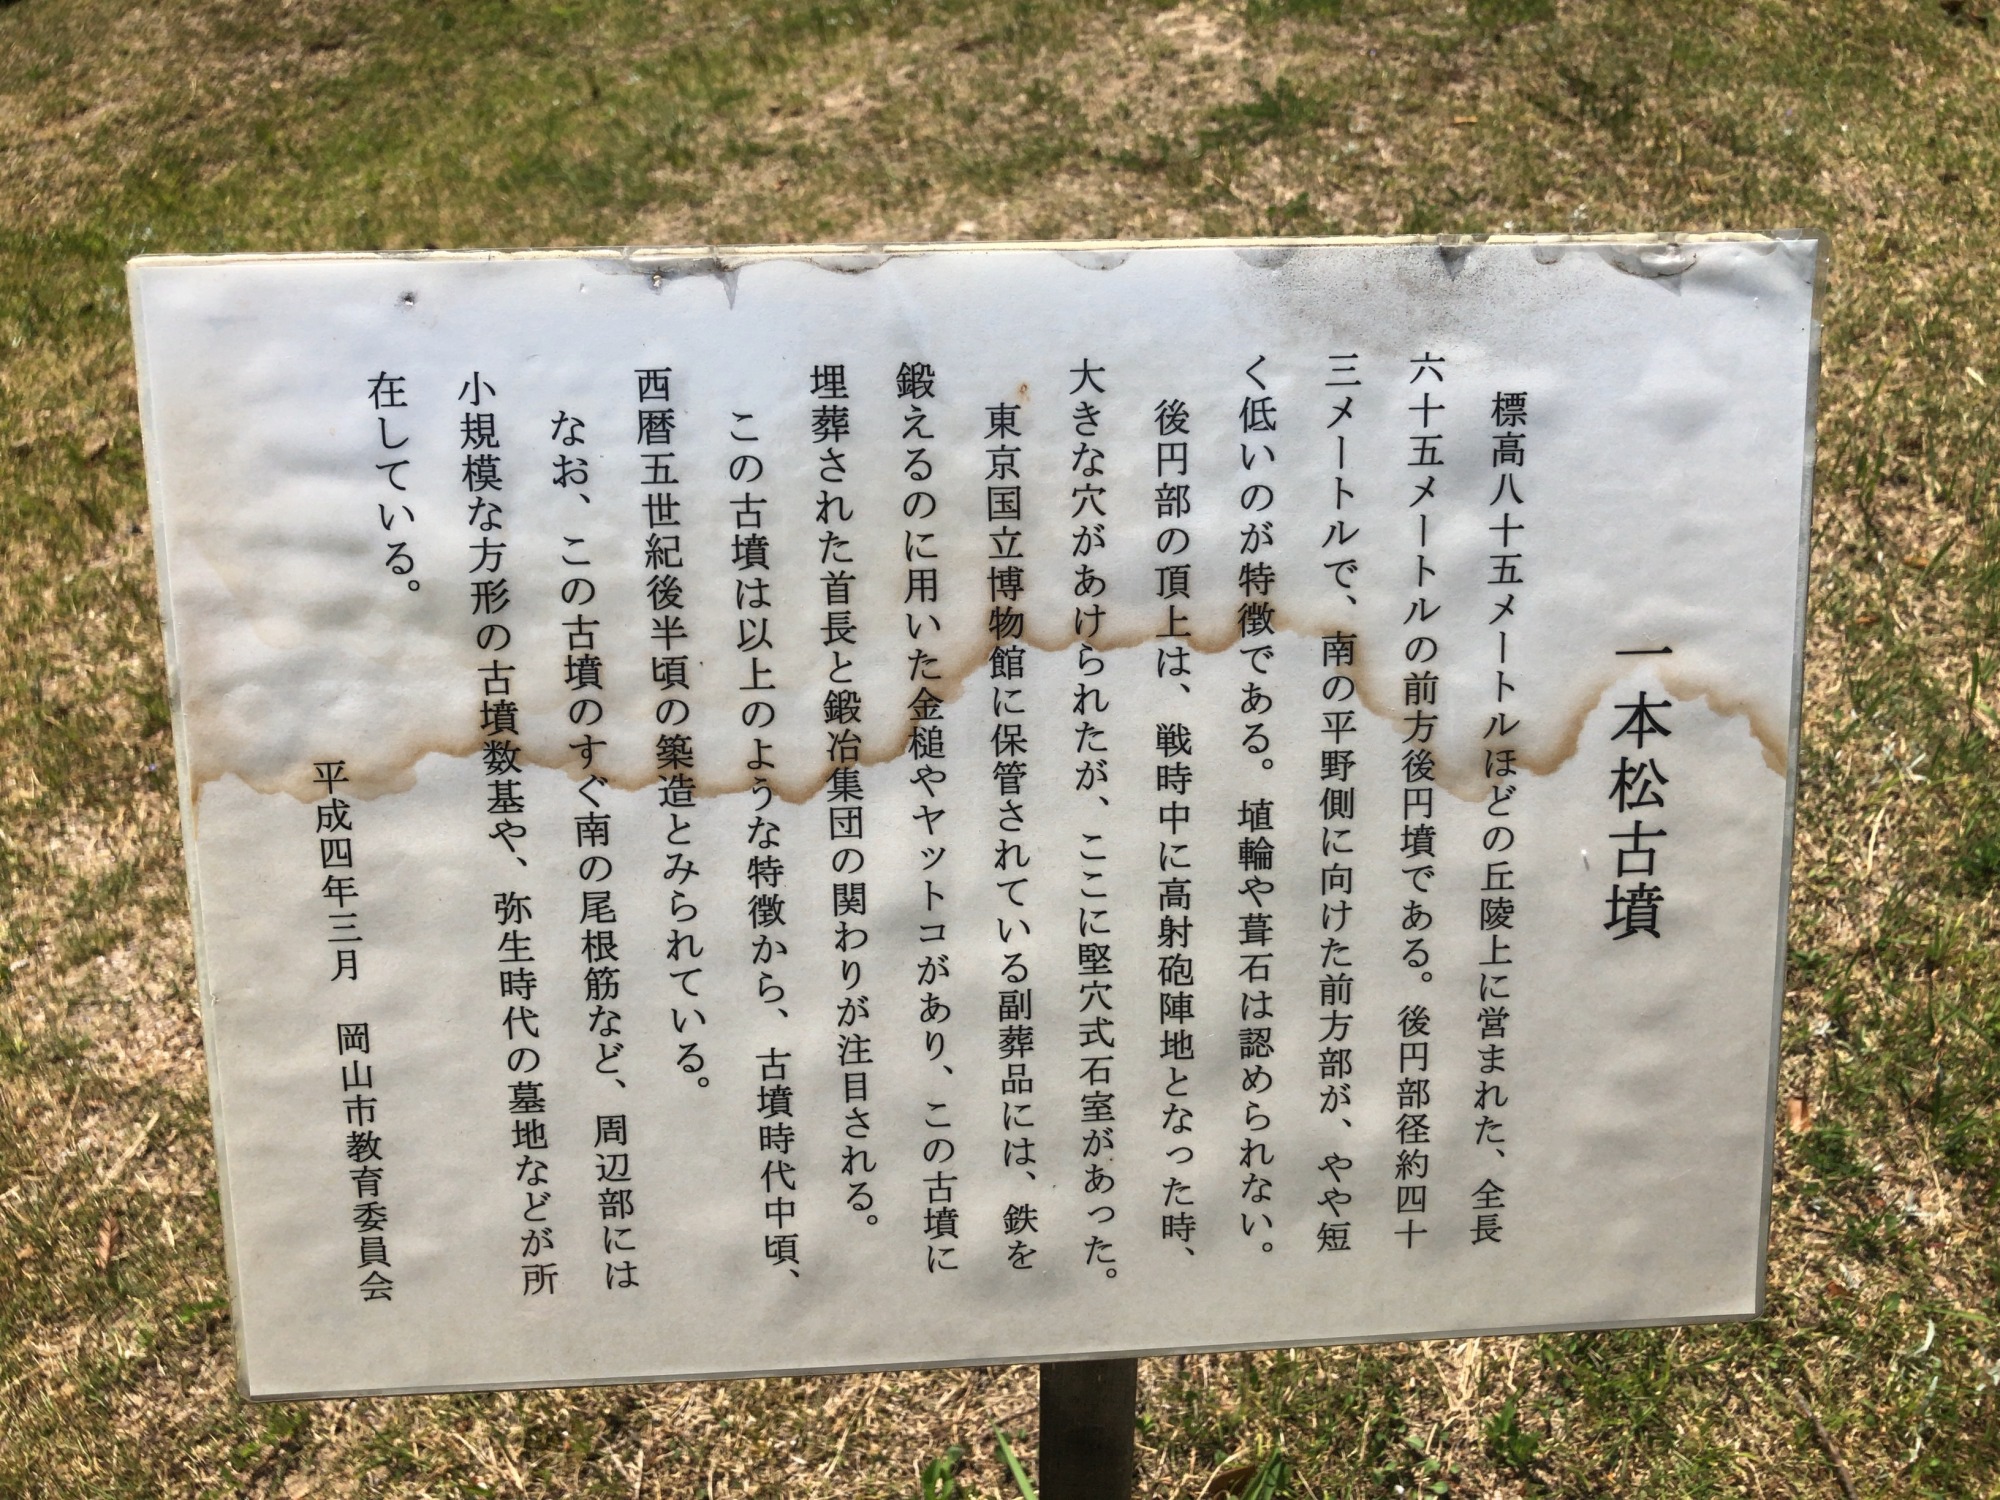 一本松古墳
標高八十五メートルほどの丘陵上に営まれた、全長
六十五メートルの前方後円墳である。後円部径約四十
三メートルで、南の平野側に向けた前方部が、やや短
く低いのが特徴である。埴輪や葺石は認められない。
後円部の頂上は、戦時中に高射砲陣地となった時、
大きな穴があけられたが、ここに堅穴式石室があった。
東京国立博物館に保管されている副葬品には、鉄を
鍛えるのに用いた金槌やヤットコがあり、この古墳に
埋葬された首長と鍛冶集団の関わりが注目される。
この古墳は以上のような特徴から、古墳時代中頃、
西暦五世紀後半頃の築造とみられている。
なお、この古墳のすぐ南の尾根筋など、周辺部には
小規模な方形の古墳数基や、弥生時代の墓地などが所
在している。
平成四年三月　岡山市教育委員会